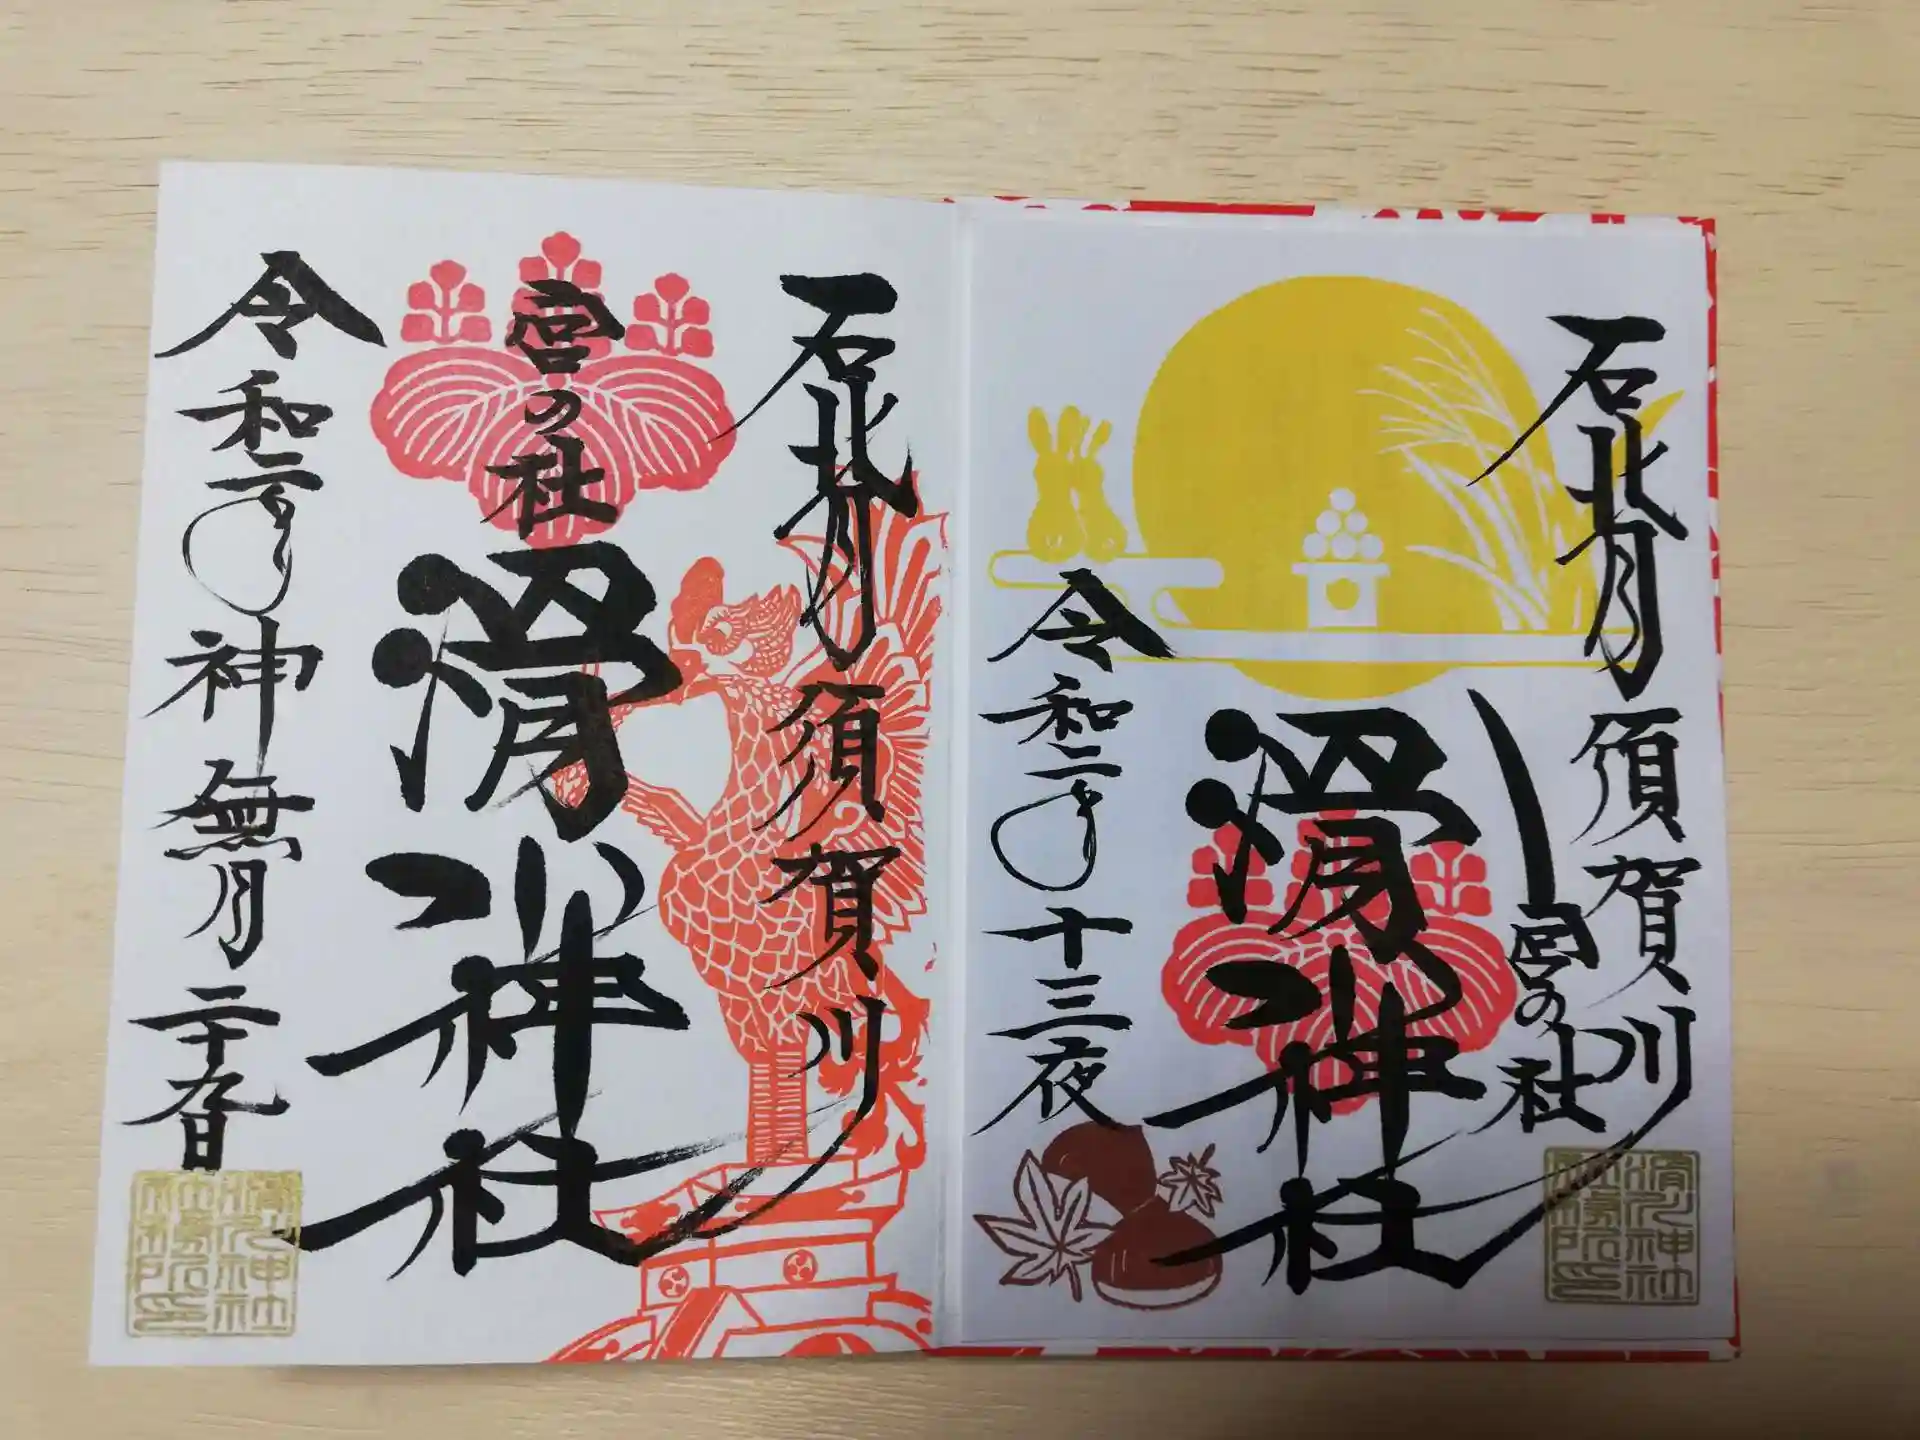 石背 須賀川
宮の杜
滑川神社
令和二年 十三夜
滑川神社
社務所印
石背 須賀川
宮の杜
滑川神社
令和二年 神無月 二十九日
滑川神社
社務所印